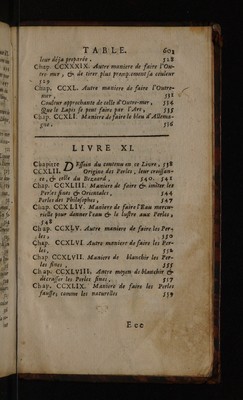 TABLE. 601
leur déja preparée. 528
Chap. CCXXXIX. Autre maniere de faire l'Ou-
tre mer, & de tirer plus promptement sa couleur
529
Chap. CCXL. Autre maniere de faire l'Outre-
mer, 531
Couleur approchante de celle d'Outre-mer, 534
Que le Lapis se peut faire par l'Art, 535
Chap. CCXLI. Maniere de faire le bleu d'Allema-
gne, 536
LIVRE XI.
Chapitre DEssein du contenu en ce Livre, 538
CCXLII. Origine des Perles, leur croissan-
ce, & celle du Bezoard, 540. 541
Chap. CCXLIII. Maniere de faire & imiter les
Perles fines & Orientales, 544
Perles des Philosophes, 547
Chap. CCXLIV. Maniere de faire l'Eau mercu-
rielle pour donner l'eau & le lustre aux Perles,
548
Chap. CCXLV. Autre maniere de faire les Per-
les, 550
Chap. CCXLVI Autre maniere de faire les Per-
les, 552
Chap. CCXLVII. Maniere de blanchir les Per-
les fines, 555
Chap. CCXLVIII. Autre moyen de blanchir &
décrasser les Perles fines, 557
Chap. CCXLIX. Maniere de faire les Perles
fausses comme les naturelles 559
Eee